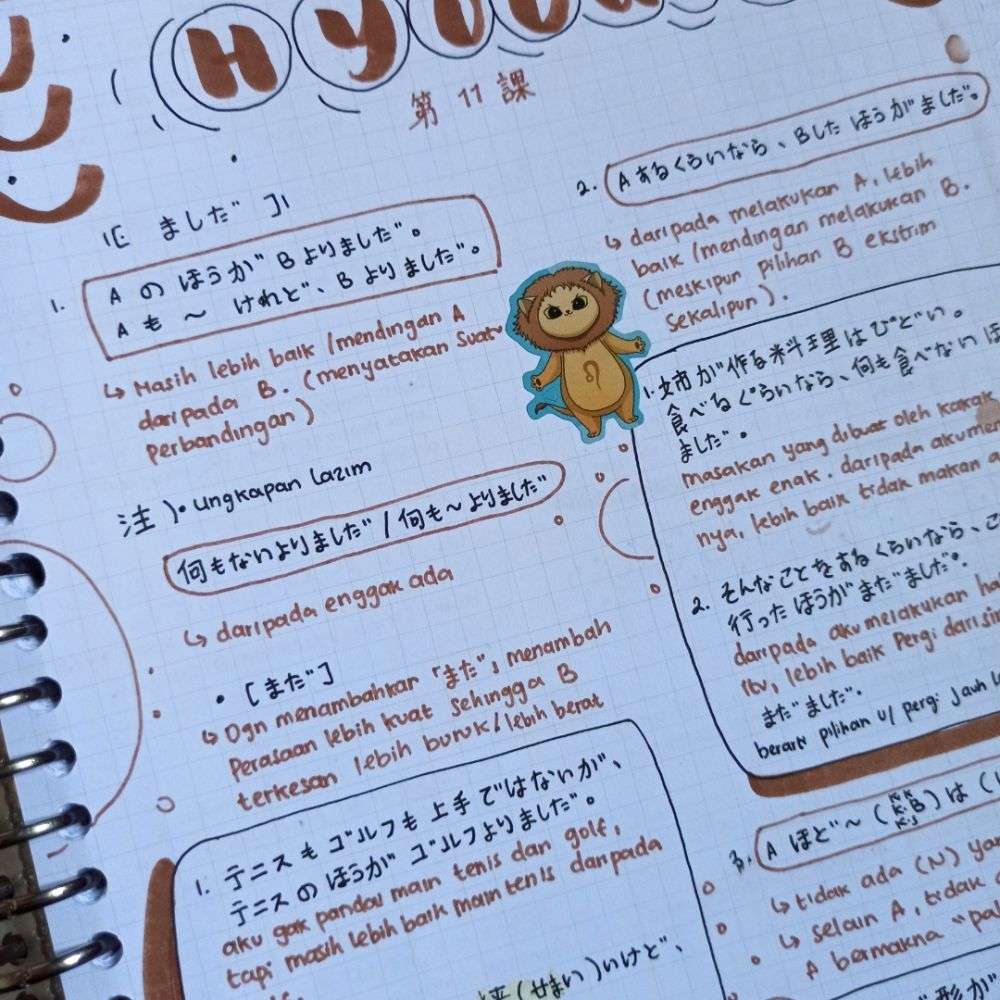 第 11 課
ました゛
1. A の ほうが B よりました゛。
A も 〜 けれど、B よりました゛。
↳ Masih lebih baik /mendingan A
daripada B. (menyatakan suatu
perbandingan)
注 )• ungkapan lazim
何もないよりました゛/ 何も〜よりました゛
↳ daripada enggak ada
• [また゛]
↳ Dgn menambahkan 「また゛」 menambah
perasaan lebih kuat sehingga B
terkesan lebih buruk/lebih berat
1. テニスもゴルフも上手ではないが、
テニスのほうがゴルフよりました゛。
aku gak pandai main tenis dan golf,
tapi masih lebih baik main tenis daripada
(せまい)いけど、
2. A するくらいなら、Bした ほうがました゛。
↳ daripada melakukan A, lebih
baik /mendingan melakukan B.
(meskipun pilihan B ekstrim
sekalipun).
1. 姉が作る料理はひどい。
食べるぐらいなら、何も食べない ほ
ました゛。
masakan yang dibuat oleh kakak
enggak enak. daripada aku
nya, lebih baik tidak makan
2. そんなことをするくらいなら、こ
行った ほうがまだました゛。
daripada aku melakukan
itu, lebih baik pergi dari
まだました゛.
berarti pilihan u/ pergi jauh
3. A ほど〜 ( B ) は (
↳ tidak ada (N)
↳ selain A, tidak
A bermakna "
形が